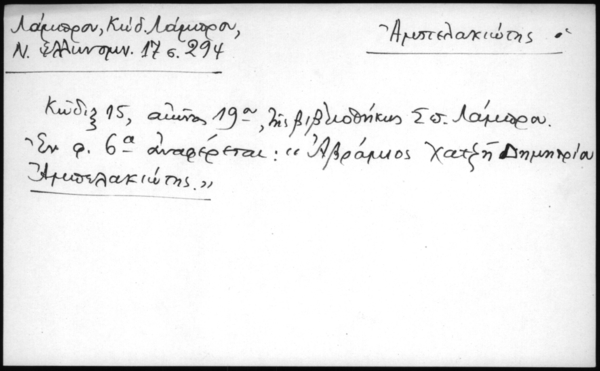 Λάμπρου, Κώδ. Λάμπρου,
Ν. Ελληνομν. 17 σ. 294
Ἀμπελακιώτης
Κώδιξ 15, αἰῶνος 19ου, τῆς βιβλιοθήκης Σπ. Λάμπρου.
Ἐν φ. 6α ἀναφέρεται: «Ἀβράμιος Χατζῆ Δημητρίου
Ἀμπελακιώτης.»